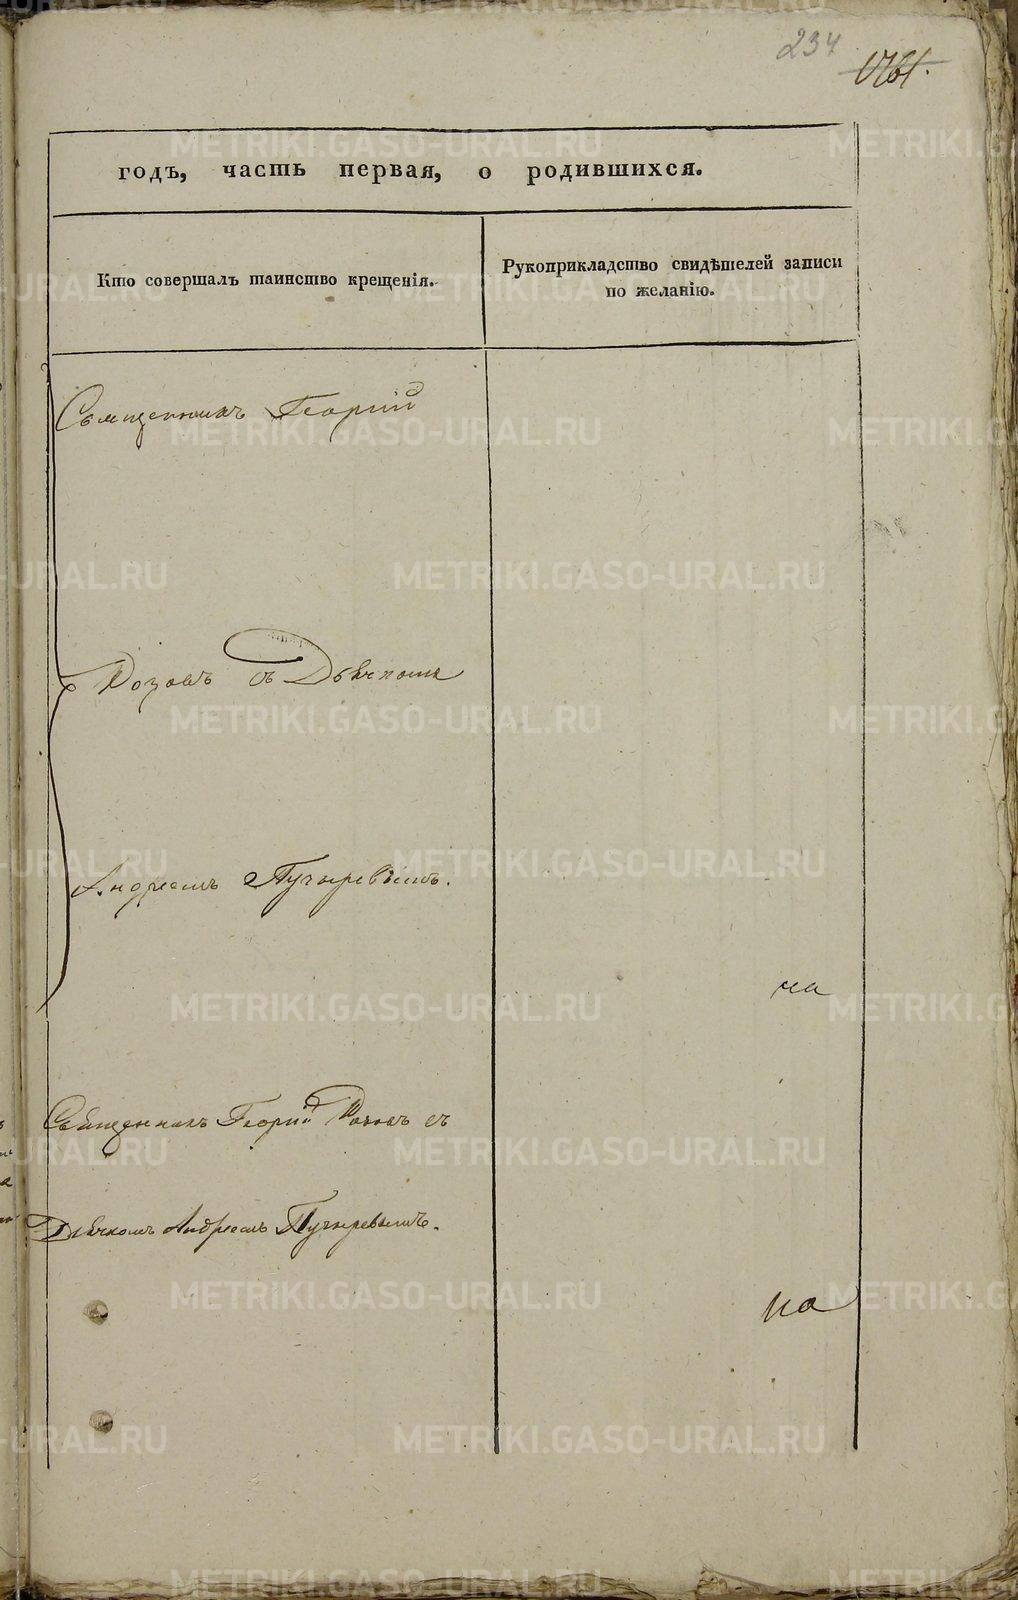 234
годъ, часть первая, о родившихся.
Кто совершалъ таинство крещенія.
Рукоприкладство свидѣтелей записи
по желанію.
Священникъ Георгій
Розовъ съ Дьячкомъ
Андреемъ Пузыревымъ.
на
Священникъ Георгій Розовъ съ
Дьячкомъ Андреемъ Пузыревымъ.
на
METRIKI.GASO-URAL.RU